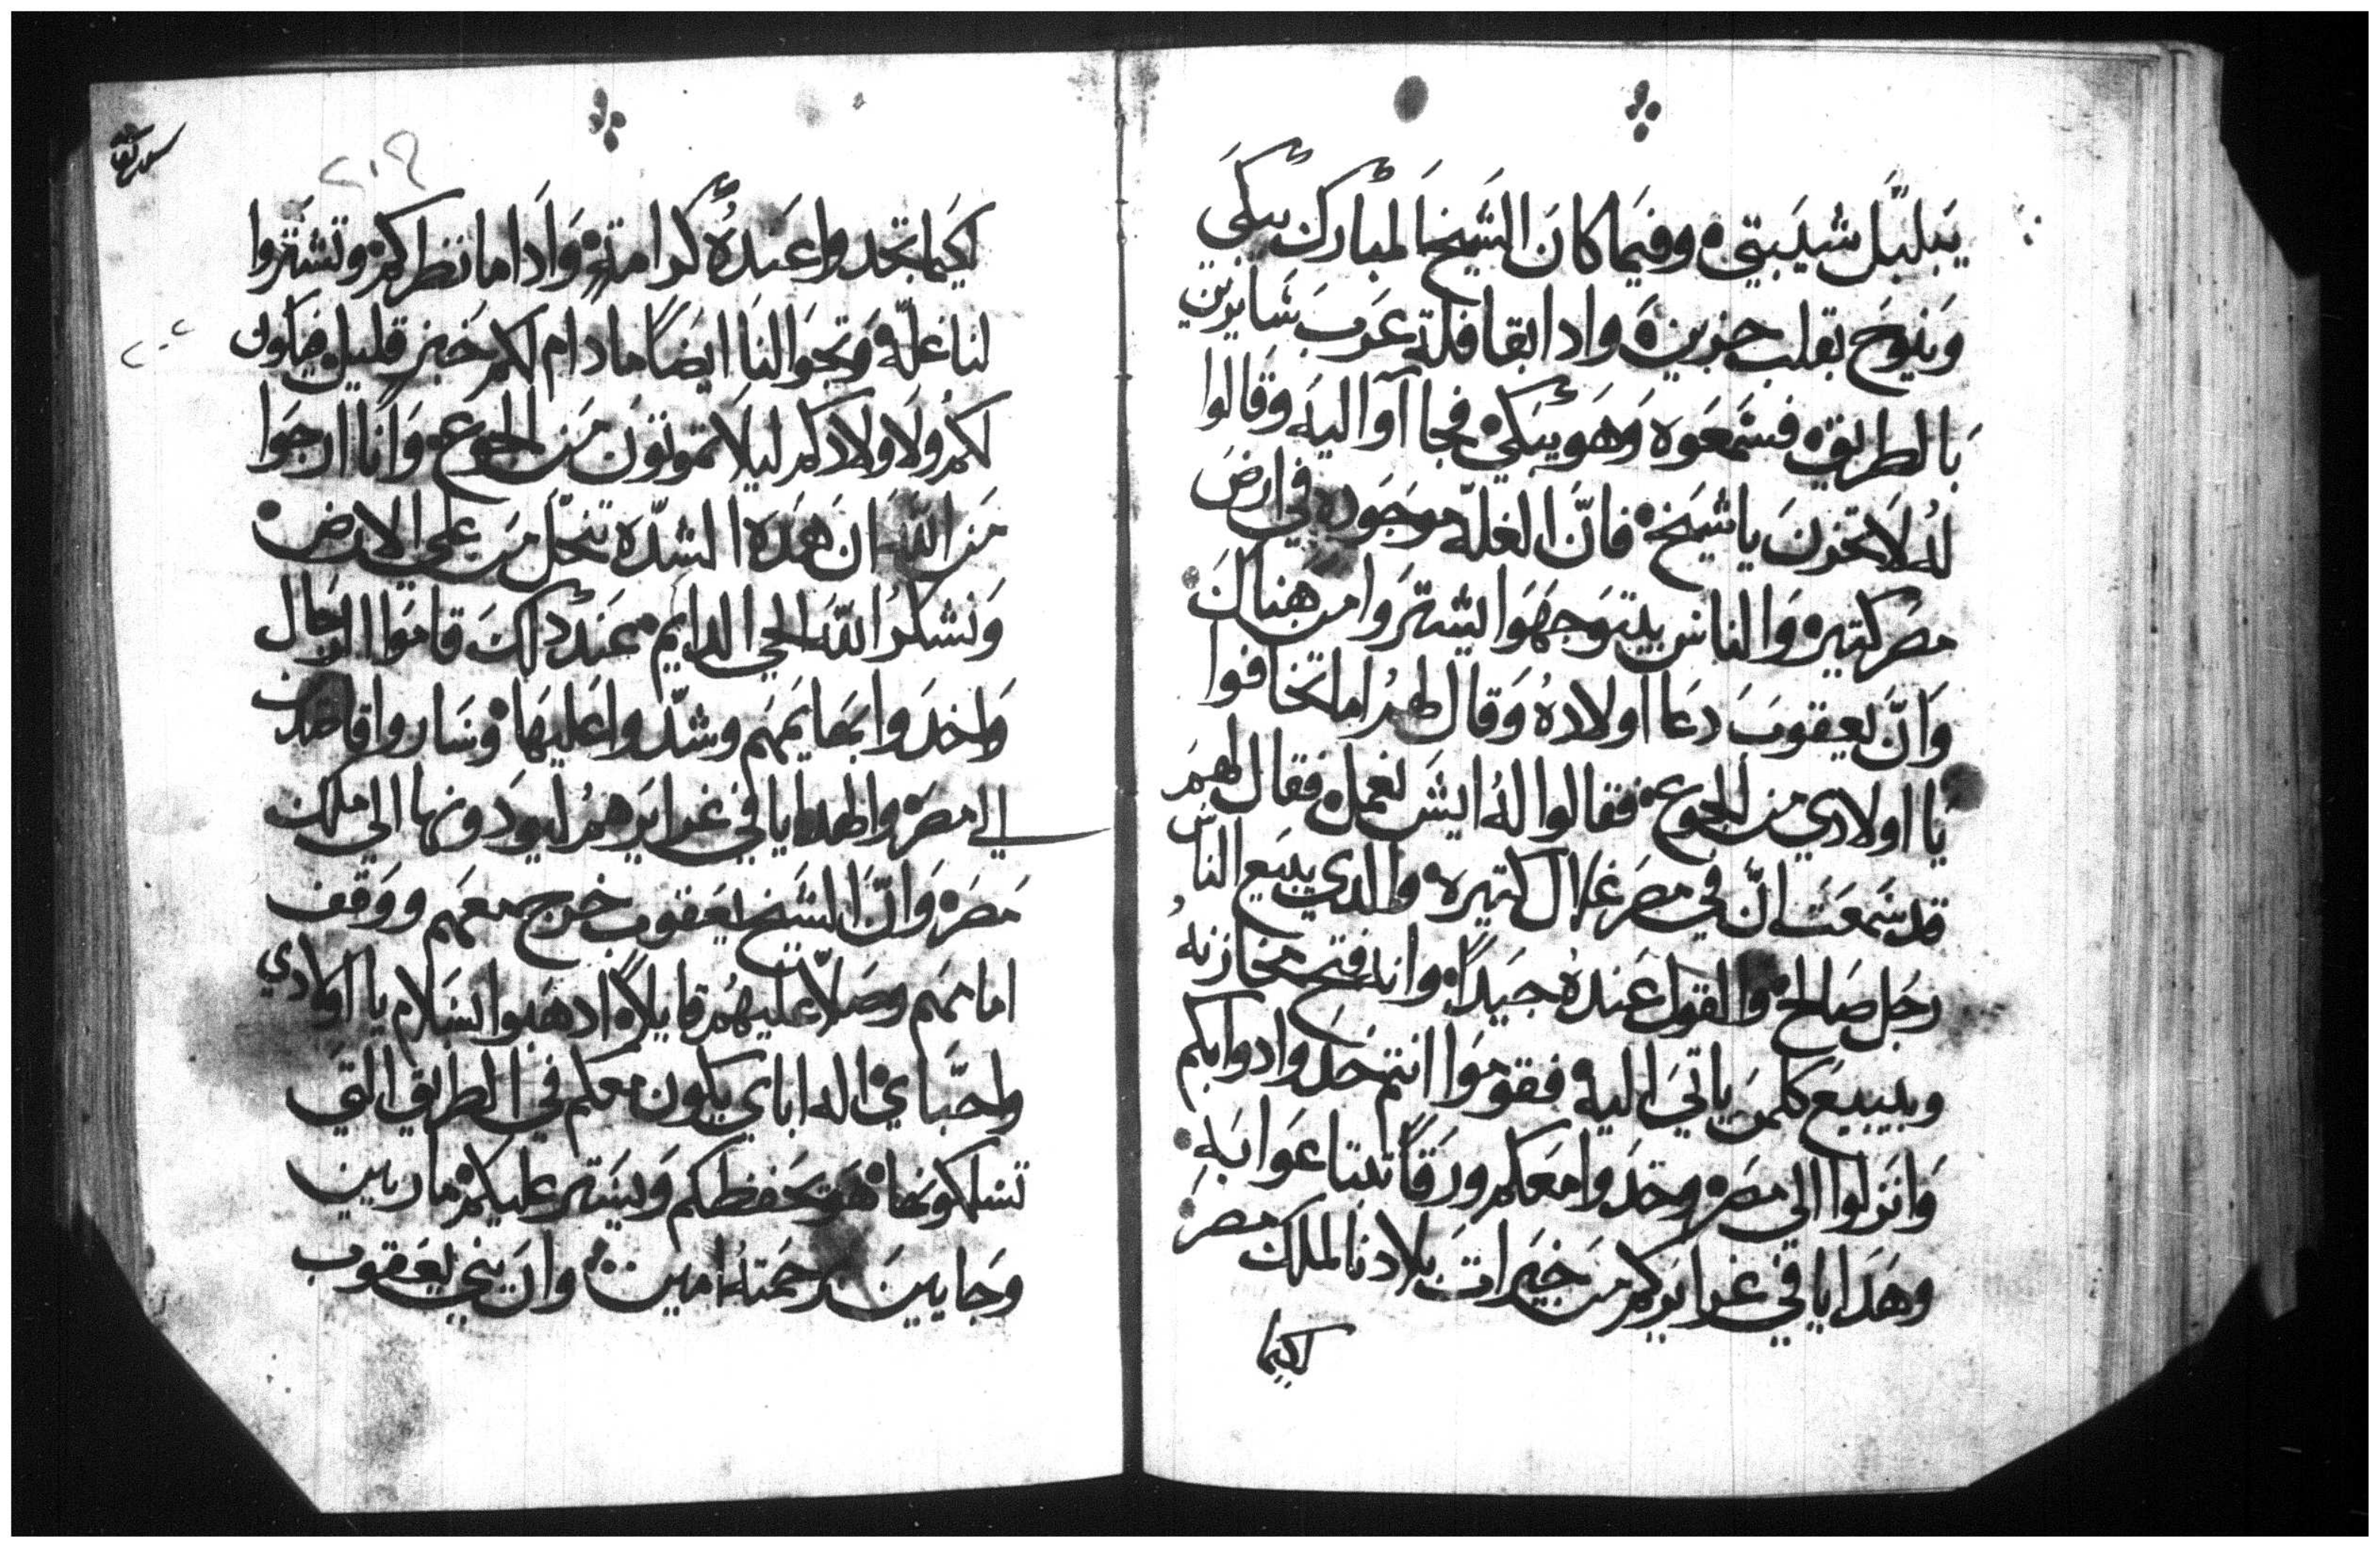 يَبلبَّل شيَبتي ۞ وفيَما كانَ الشَيخ المبارك يبكي
وَينوح بقلب حزين ۞ وادا بقافلة عَرب سَايرين
بَالطريق ۞ فسَمعَوه وَهَو يبَكي ۞ فجاآوا اليَه وَقالوا
لهُ لاَ تحزن يا شيَخ ۞ فانَّ الغلّه موجَوده في ارض
مصَر كتيره وَالناس بيتوَجهَوا ليشترَوا من هَناك
وَانَّ يعقوبَ دعَا اولادهُ وَقال لهمُ اما تخافوا
يَا اولادي من الجوع ۞ فقالوا لهُ ايشَ نعمل ۞ فقال لهمَ
قد سَمعَت انّ في مصَر غلال كتيره والدي يبيَع الناس
رجَل صَالح ۞ والقول عَندهُ جيَداً ۞ وانه فتح مخازنهُ
وبيبيعَ كلمنَ ياتيَ اليه ۞ فقومَوا انتم خدَوا دوابكم
وَانزلوا الى مصَر ۞ وخدَوا معَكم ورَقاً تبتاعَوا بَه ۞
وهَدَايا في غرايركم من خيَرات بلادنا لملك مصَر
لكيما
٢٠٩
لكيَما تجَدوا عَندهُ كرامة ۞ وَادَا ما نظركم ۞ وتشتَروا
لنا غلّه وَتجَوا لنا ايضاً ما دام لكم خبز قليل فيكون
لكم وَلاولادكم ليلا تموتون من الجوع ۞ وَانا ارجَوا
من الله ان هَده الشدّه تنحَلّ من على الارض ۞
وَنشكر الله الحي الدايم ۞ عَند دلك قامَوا الرجَال
وَاخدَوا بهَايمَهم وشدّوا عَليهَا ۞ وسَاروا قاصَدين
الى مصَر ۞ والهدايا في غرايرَهمُ ليودَونها الى ملك
مَصَر ۞ وَانّ الشَيخ يعَقوب خرج معَهم ووَقف
امامَهم وصَلاّ عليهمُ قايلاً ۞ ادهَبوا بسَلام يا اولادي
واحبّاي ۞ اله اباي يكون معكم في الطريق التي
تسَلكونهَا ۞ هَو يحَفظكم وَيسَتر عليكم ۞ مارين
وجَايين برحمتهُ امين ۞ وان بني يعَقوب